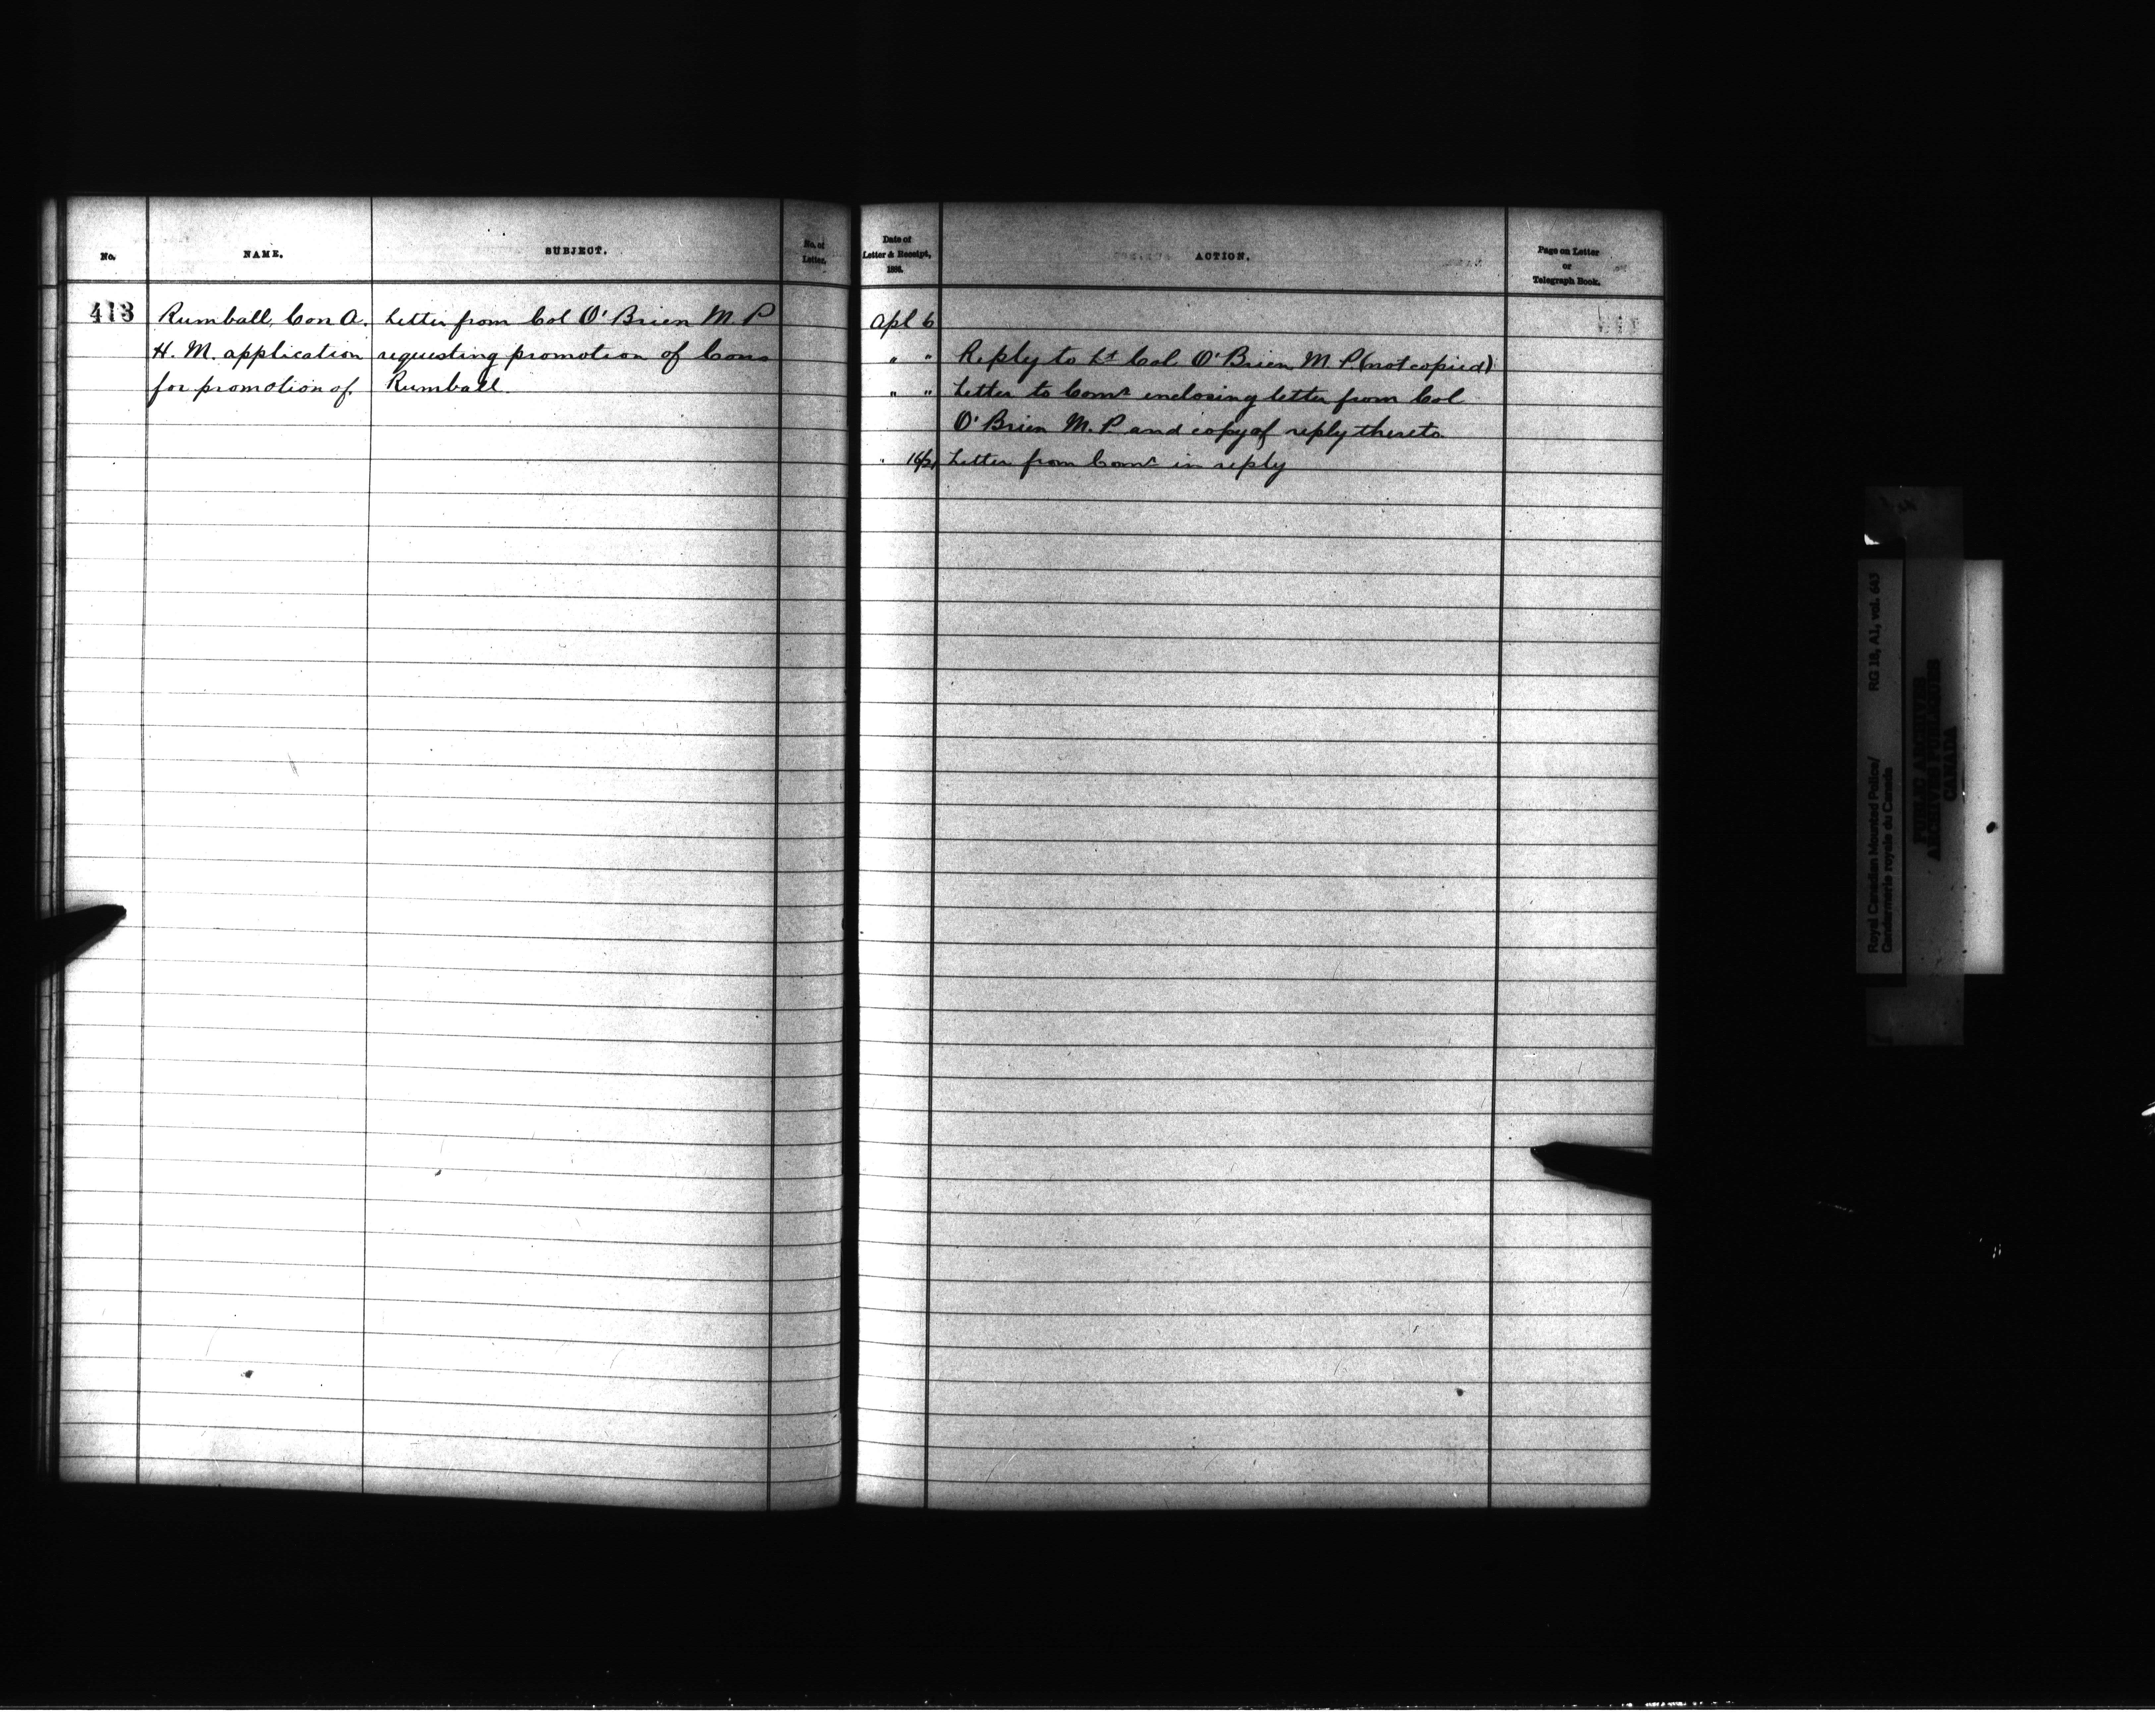 No.
NAME.
SUBJECT.
No. of
Letter.
413
Rumball, Con A.
H. M. application
for promotion of.
Letter from Col O'Brien M. P
requesting promotion of Cons
Rumball.
Date of
Letter & Receipt,
188
ACTION.
Page on Letter
or
Telegraph Book.
Apl 6
" " Reply to Lt Col O'Brien M. P. (not copied)
" " Letter to Comr enclosing letter from Col
O'Brien M. P and copy of reply thereto.
" 16/21 Letter from Comr in reply
Royal Canadian Mounted Police/
Gendarmerie royale du Canada
RG 18, A1, vol. 643
PUBLIC ARCHIVES
ARCHIVES PUBLIQUES
CANADA